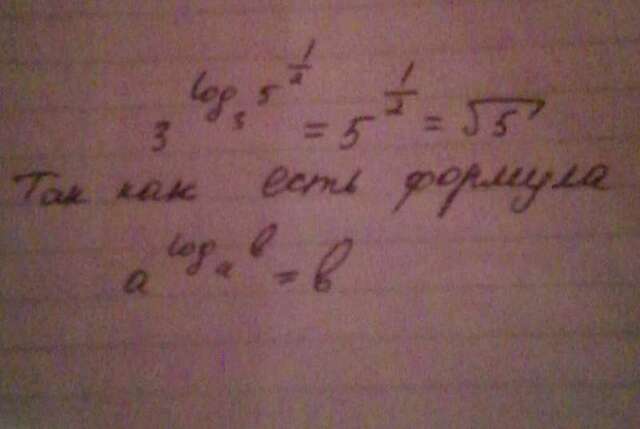 3^{log_3 5^{\frac{1}{2}}} = 5^{\frac{1}{2}} = √5
Так как есть формула
a^{log_a b} = b